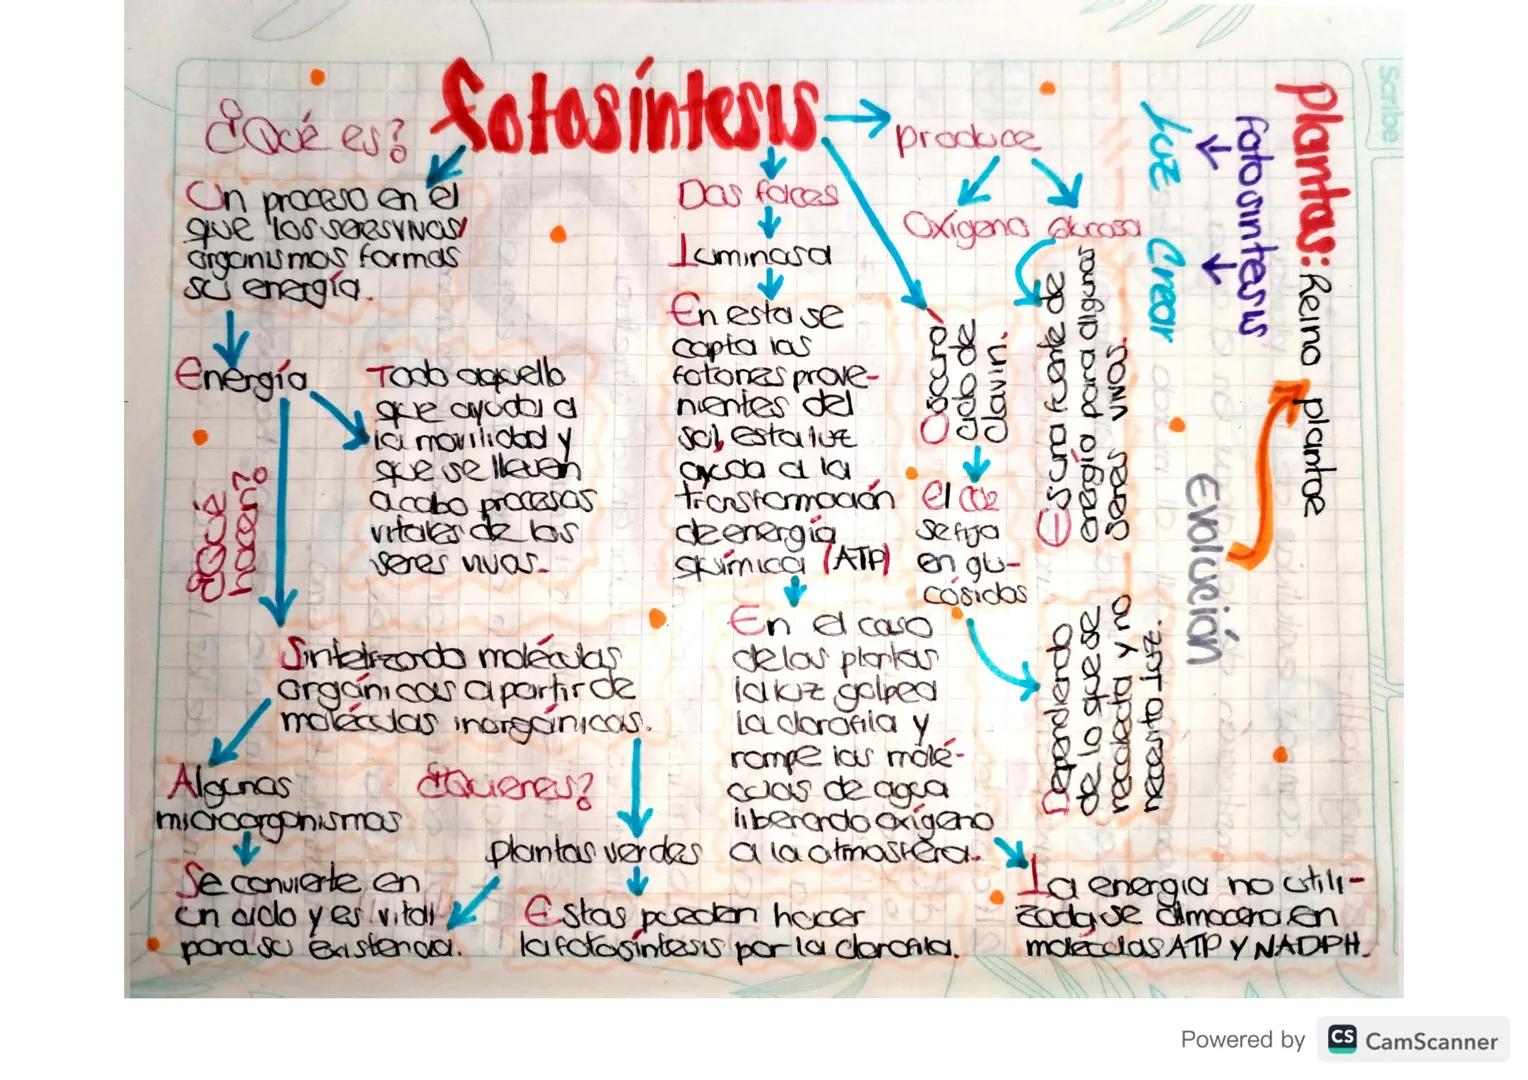 fotosíntesis
¿Qué es?
Un proceso en el
que los seres vivos/
organismos formas
su energía.
Energía
Todo aquello
que ayuda a
la movilidad y
que se lleven
a cabo procesos
vitales de los
seres vivos.
¿Qué
hacen?
Sintetizando moléculas
orgánicas a partir de
moléculas inorgánicas.
Algunos
microorganismos
Se convierte en
un ciclo y es vital
para su existencia.
¿Quienes?
plantas verdes
Estas pueden hacer
la fotosíntesis por la clorofila.
Dos faces
Luminosa
En esta se
capta los
fotones prove-
nientes del
sol, esta luz
ayuda a la
transformación
de energía
química (ATP)
En el caso
de las plantas
la luz golpea
la clorofila y
rompe las molé-
culas de agua
liberando oxígeno
a la atmosfera.
La energia no utili-
zada se almacena en
moleculas ATP Y NADPH.
produce
Oxígeno
Glucosa
Es una fuente de
energía para algunos
seres vivos.
Oscura
Ciclo de
Clavin.
El
se fija
en glu-
cósidos
Dependiendo
de lo que se
recolecta y no
necesita luz.
Plantas: Reino plantae
fotosintesis
Luz
Crear
Evolución
Scribe
Powered by
CS CamScanner